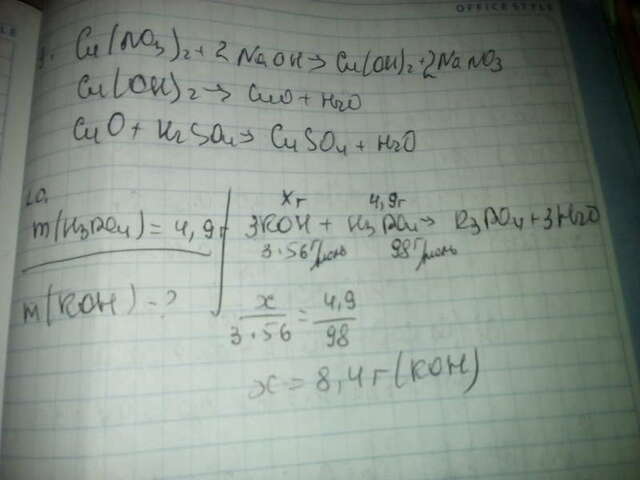 OFFICE STYLE
9. Cu(NO3)2 + 2NaOH → Cu(OH)2 + 2NaNO3
Cu(OH)2 → CuO + H2O
CuO + H2SO4 → CuSO4 + H2O
10.
xг 4,9г
m(H3PO4) = 4,9г 3KOH + H3PO4 → K3PO4 + 3H2O
3·56г/моль 98г/моль
m(KOH) - ?
x/3·56 = 4,9/98
x = 8,4г (KOH)